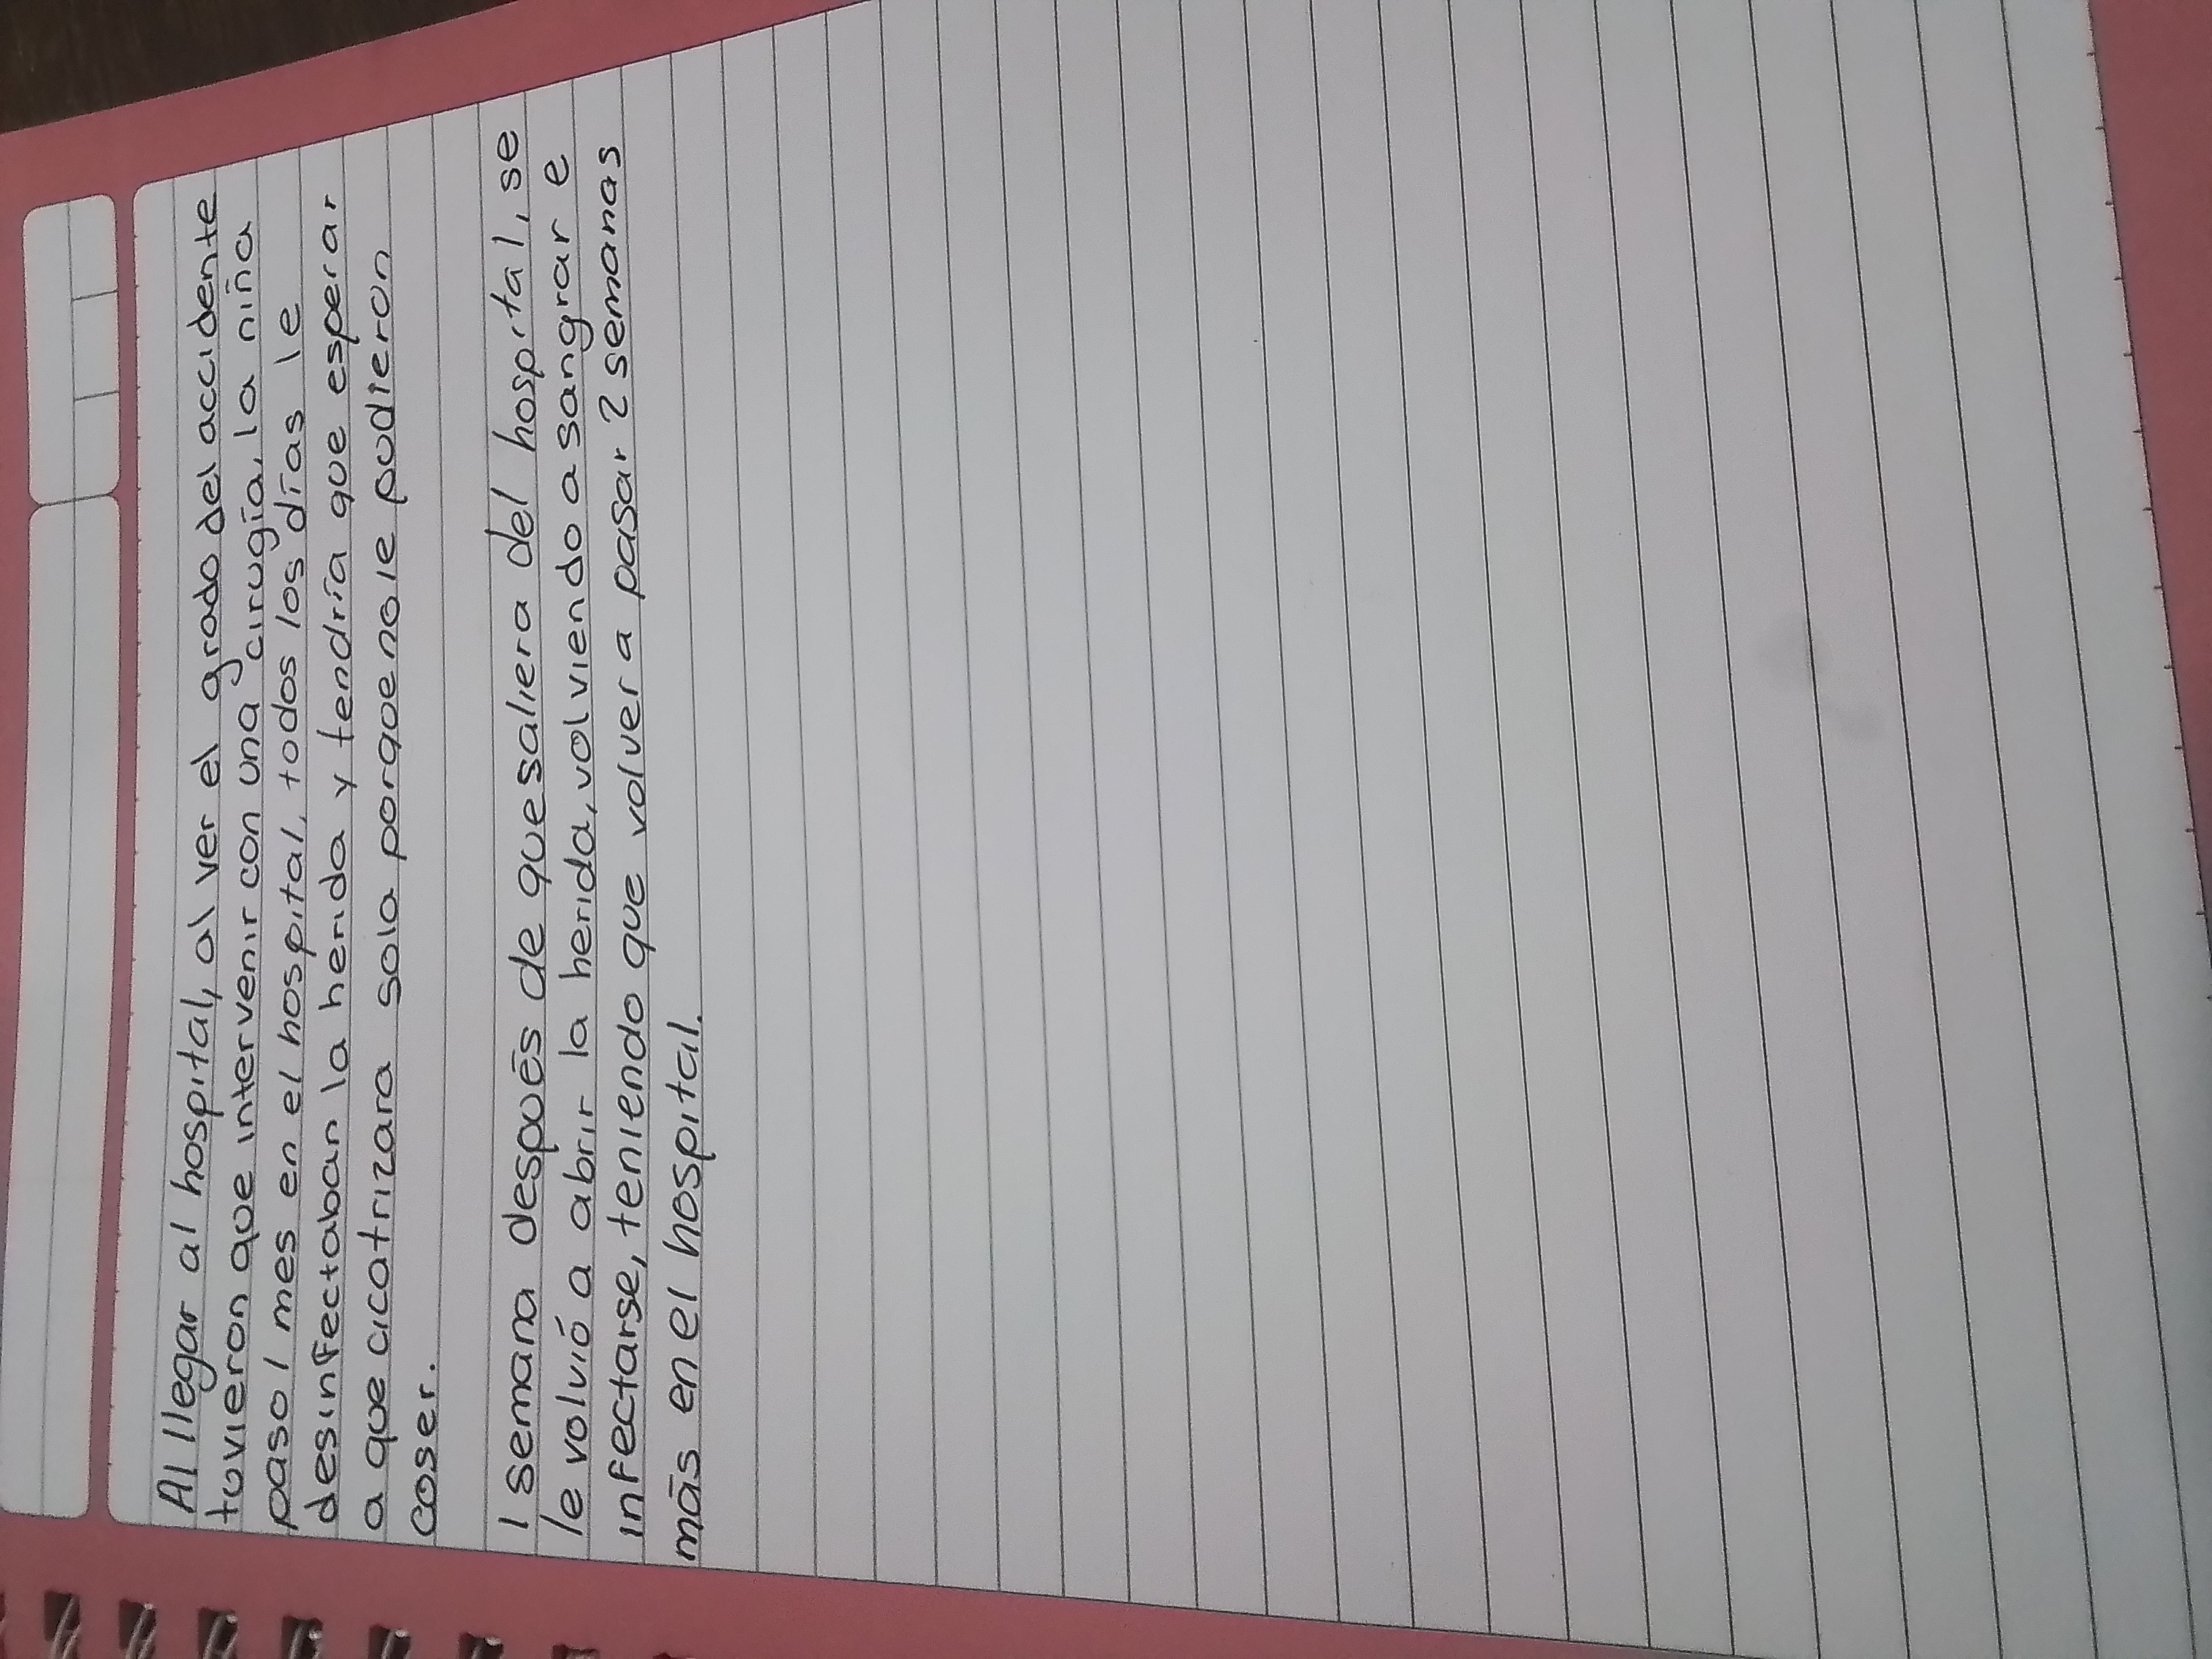 Al llegar al hospital, al ver el grado del accidente
tuvieron que intervenir con una cirugía, la niña
paso 1 mes en el hospital, todos los días le
desinfectaban la herida y tendría que esperar
a que cicatrizara sola porque no le pudieron
coser.
1 semana después de que saliera del hospital, se
le volvió a abrir la herida, volviendo a sangrar e
infectarse, teniendo que volver a pasar 2 semanas
más en el hospital.